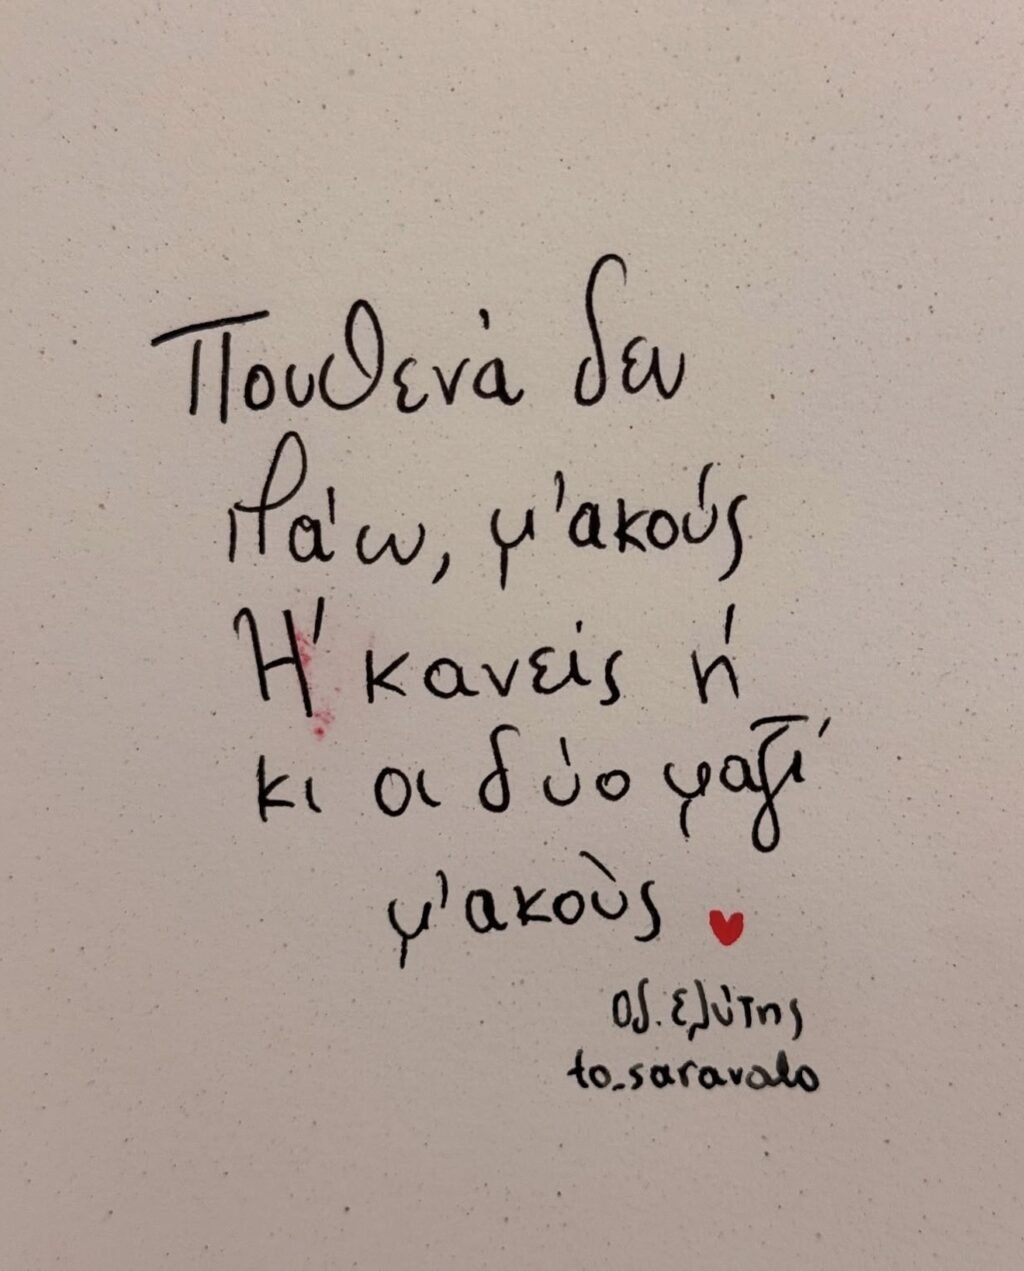 Πουθενά δεν
πάω, μ'ακούς
Ή κανείς ή
κι οι δύο μαζί
μ'ακοὺς
οδ. ελύτης
to_saravalo